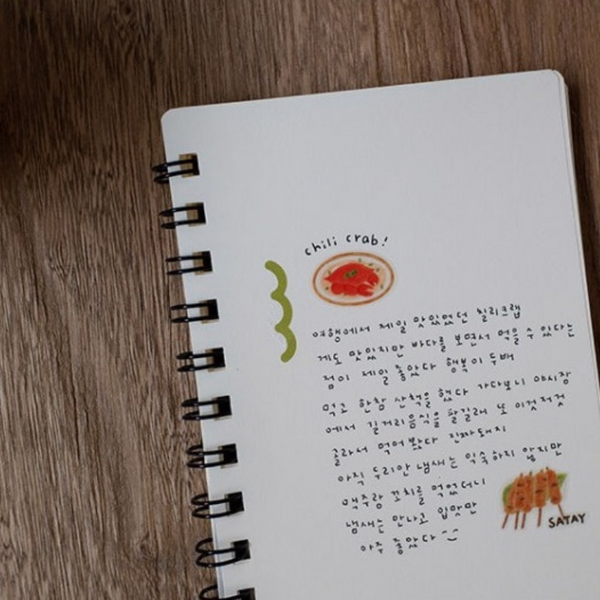 chili crab!
여행에서 제일 맛있었던 칠리크랩
게도 맛있지만 바다를 보면서 먹을수 있다는
점이 제일 좋았다 행복이 두배
먹고 한참 산책을 했다 가다보니 야시장
에서 길거리음식을 팔길래 또 이것저것
골라서 먹어 봤다 진짜돼지
아직 두리안 냄새는 익숙하지 않지만
맥주랑 꼬치를 먹었더니
냄새는 만나고 입맛만
아주 좋았다
SATAY